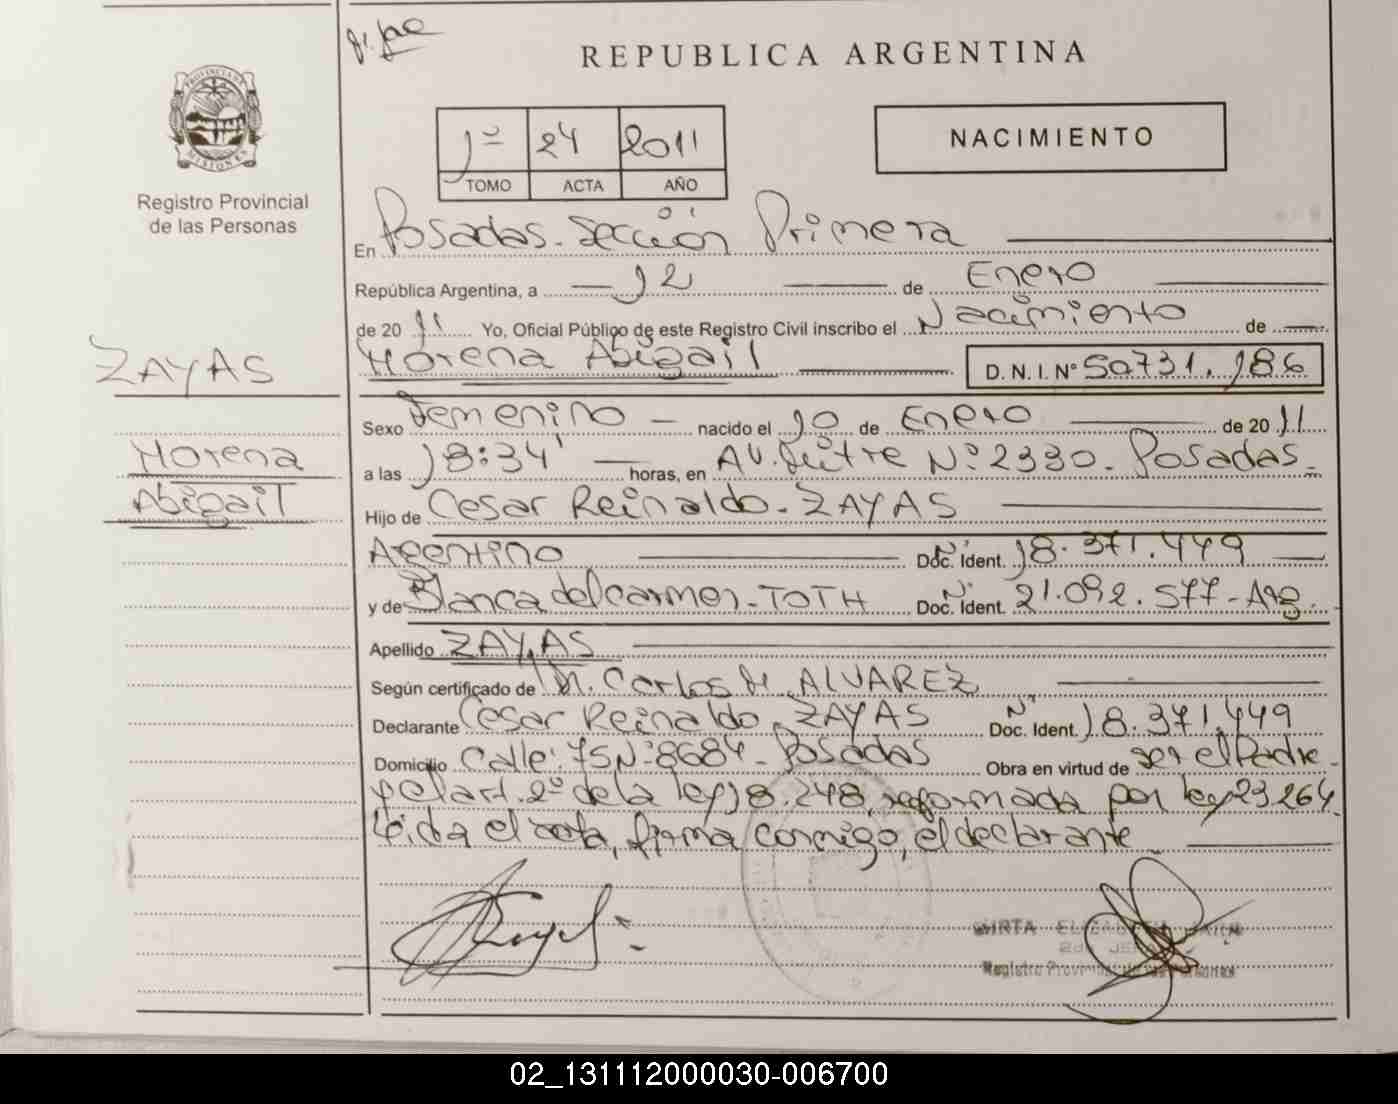 REPUBLICA ARGENTINA
PROVINCIA DE
MISIONES
Registro Provincial
de las Personas
1º 24 2011
TOMO ACTA AÑO
NACIMIENTO
En Posadas. Sección Primera
República Argentina, a 12 de Enero
de 2011 Yo, Oficial Público de este Registro Civil inscribo el Nacimiento de
ZAYAS
Morena Abigail
D. N. I. Nº 50731.186
Sexo Femenino nacido el 10 de Enero de 2011
Morena
Abigail
a las 18:34' horas, en AV. Mitre Nº 2330. Posadas.
Hijo de Cesar Reinaldo. ZAYAS
Argentino Doc. Ident. Nº 18.371.449
y de Blanca del Carmen. TOTH Doc. Ident. Nº 21.092.577-Arg.
Apellido ZAYAS
Según certificado de Dr. Carlos ALVAREZ
Declarante Cesar Reinaldo. ZAYAS Doc. Ident. Nº 18.371.449
Domicilio Calle: 75 Nº 8684. Posadas Obra en virtud de ser el Padre
y el art. 2º de la ley 18.248, reformada por ley 23264.
Leida el acta, firma conmigo, el declarante.
MIRTA
Registro Provincial de las Personas
02_131112000030-006700